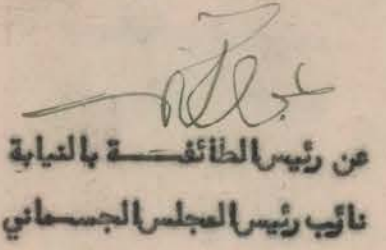 عن رئيس الطائفة بالنيابة
نائب رئيس المجلس الجسماني